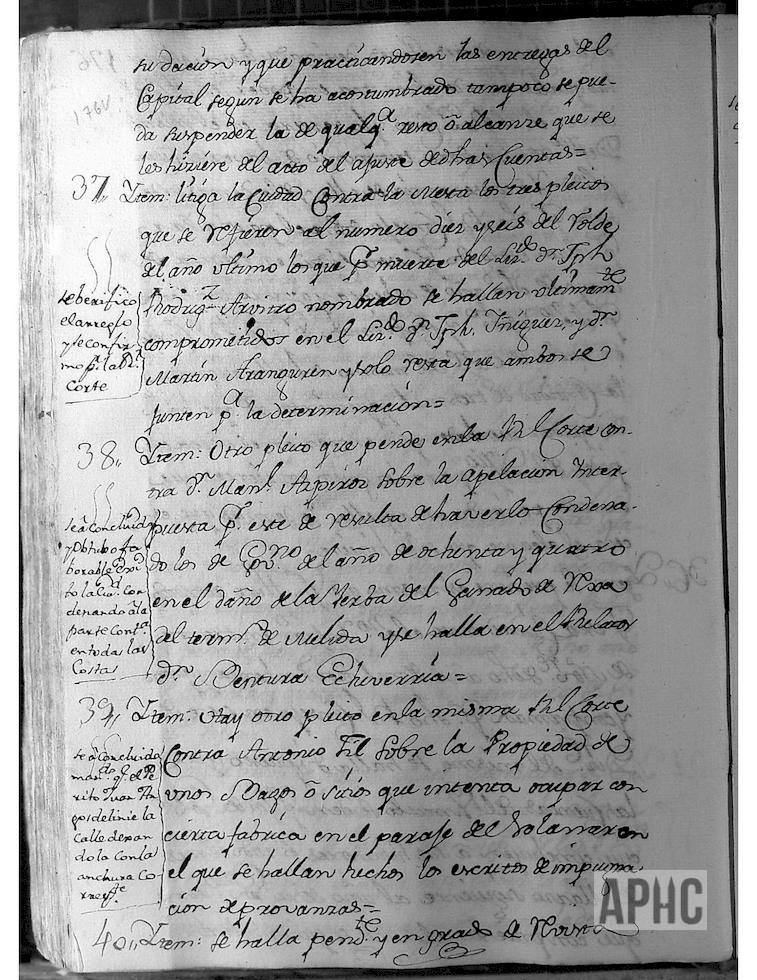 su dacion y que practicandosen las entregas del
Capital segun se ha acostumbrado tampoco se pue-
da suspender la de qualq.ª resto ō alcanze que se
les hiziere del acto del ajuste de dhas Cuentas=
37,, Ytem: litiga la Ciudad Contra la Mesta los tres pleitos
que se refieren al numero diez y seis del Rolde
del año ultimo los que pr muerte del Lizdo dn Jph
Rodrigz Arvitro nombrado se hallan ultimamte
comprometidos en el Lizdo dn Jph. Iñiguez, y dn
Martin Aranguren y solo resta que ambos se
junten pª la determinacion=
se berifico
el arreglo
y se confir
mo pr la Rl
Corte
38,, Ytem: Otro pleito que pende en la Rl Corte con-
tra dn Manl Azpiroz sobre la apelacion Inter-
puesta pr este de resulta de haverlo Condena-
do los de Govno del año de ochenta y quatro
en el daño de la Yerba del Ganado de
del termo de Melida y se halla en el Relator
dn Bentura Echeverria=
se ā Concluido
y Obtubo fa
borable
to la Ciud Con
denando ā la
parte Contª
en todas las
Costas
39,, Ytem: Hay otro pleito en la misma Rl Corte
Contra Antonio Gil sobre la Propiedad de
unos Bazos ō sitios que intenta ocupar con
cierta fabrica en el paraje del
el que se hallan hechos los escritos de impugna
cion de provanzas=
se ā Concluido
mando q. el Pe
rito Juan An
delinie la
Calle dexan
do la con la
anchura Co
rrespte
40,, Ytem: se halla pendte y en grado de Revista
176v
APHC